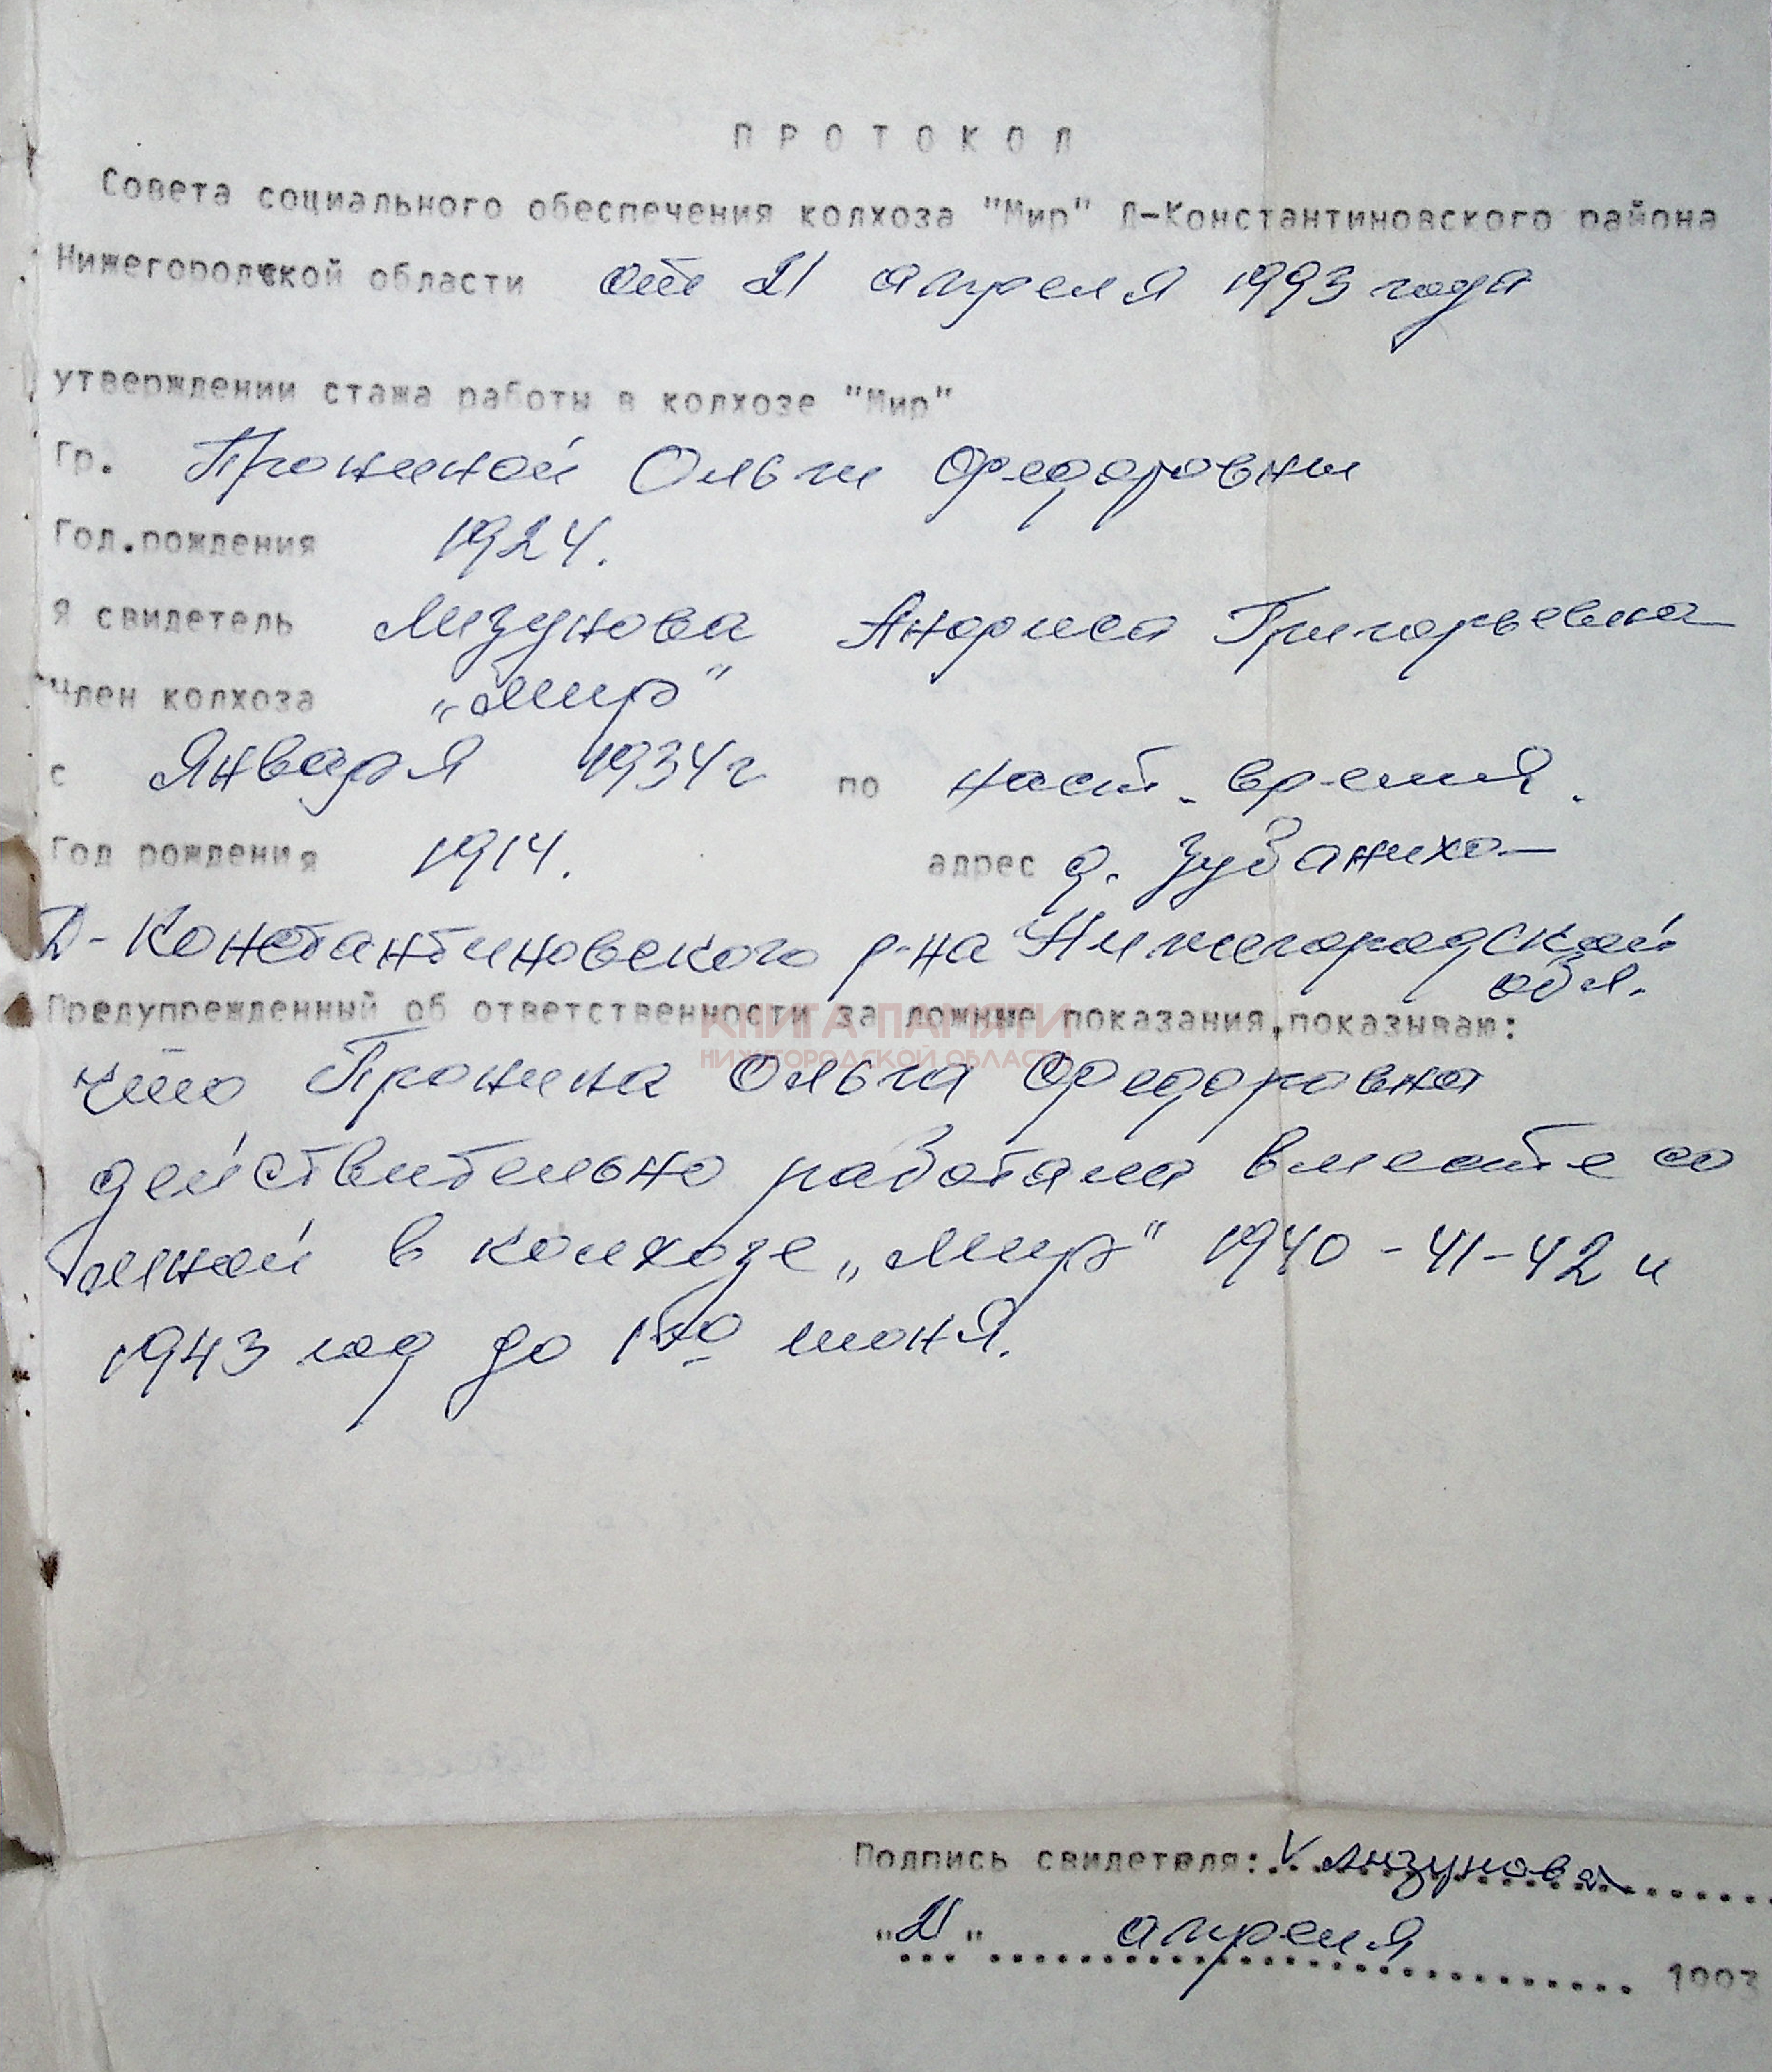 ПРОТОКОЛ
Совета социального обеспечения колхоза "Мир" Д-Константиновского района
Нижегородской области от 21 апреля 1993 года
утверждении стажа работы в колхозе "Мир"
Гр. Прониной Ольги Федоровны
Год.рождения 1924.
Я свидетель Лизунова Анфиса Григорьевна
Член колхоза „Мир"
с Января 1934г по наст. время.
Год рождения 1914. адрес д. Зубаниха
Д-Константиновского р-на Нижегородской
обл.
Предупрежденный об ответственности за ложные показания,показываю:
КНИГА ПАМЯТИ
НИЖЕГОРОДСКОЙ ОБЛАСТИ
что Пронина Ольга Федоровна
действительно работала вместе со
мной в колхозе „Мир" 1940-41-42 и
1943 год до июня.
Подпись свидетеля: V Лизунова
"21" апреля 1993